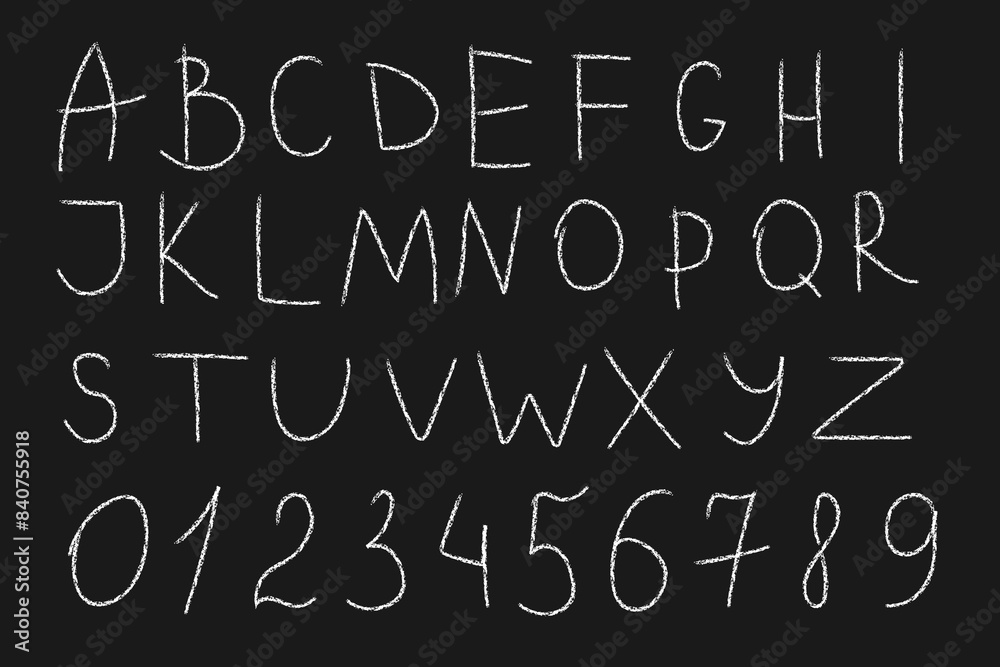 A B C D E F G H I
J K L M N O P Q R
S T U V W X Y Z
0 1 2 3 4 5 6 7 8 9
Adobe Stock | #840755918